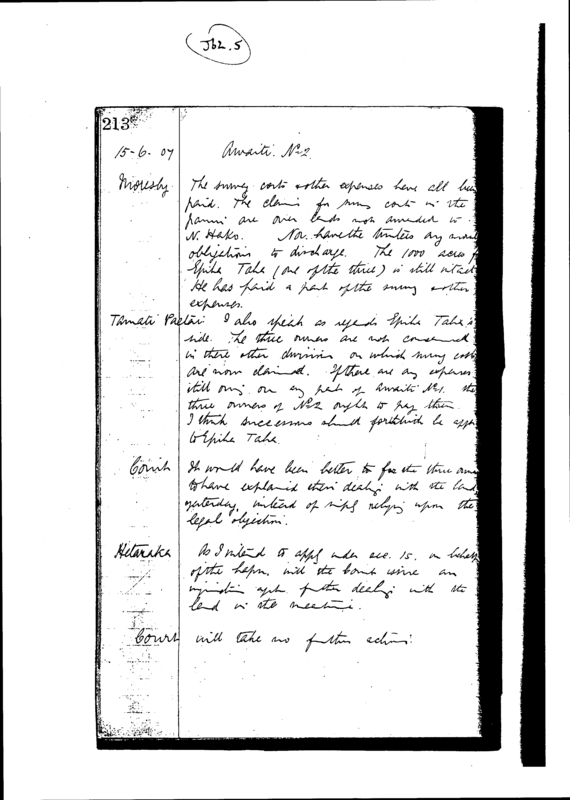 J62.5
213
15-6-07 Awaiti No 2
Moresby The survey costs & other expenses have all been
paid. The claims for survey costs in the
panui are over lands not awarded to
N. Hako. Nor have the trustees any moral
obligations to discharge. The 1000 acres
Epiha Taha (one of the three) is still intact
He has paid a part of the survey & other
expenses.
Tamati Paetai I also speak as regards Epiha Taha's
side. The three owners are not concerned
in these other divisions on which survey costs
are now claimed. If there are any expenses
still owing on any part of Awaiti No 1. the
three owners of No 2 ought to pay them.
I think successors should forthwith be app
to Epiha Taha.
Court It would have been better to for the three
to have explained their dealing with the land
yesterday, instead of simply relying upon the
legal objection.
Hetaraka As I intend to apply under sec. 15. on behalf
of the hapu, will the Court issue an
injunction agst further dealing with the
land in the meantime.
Court will take no further action.